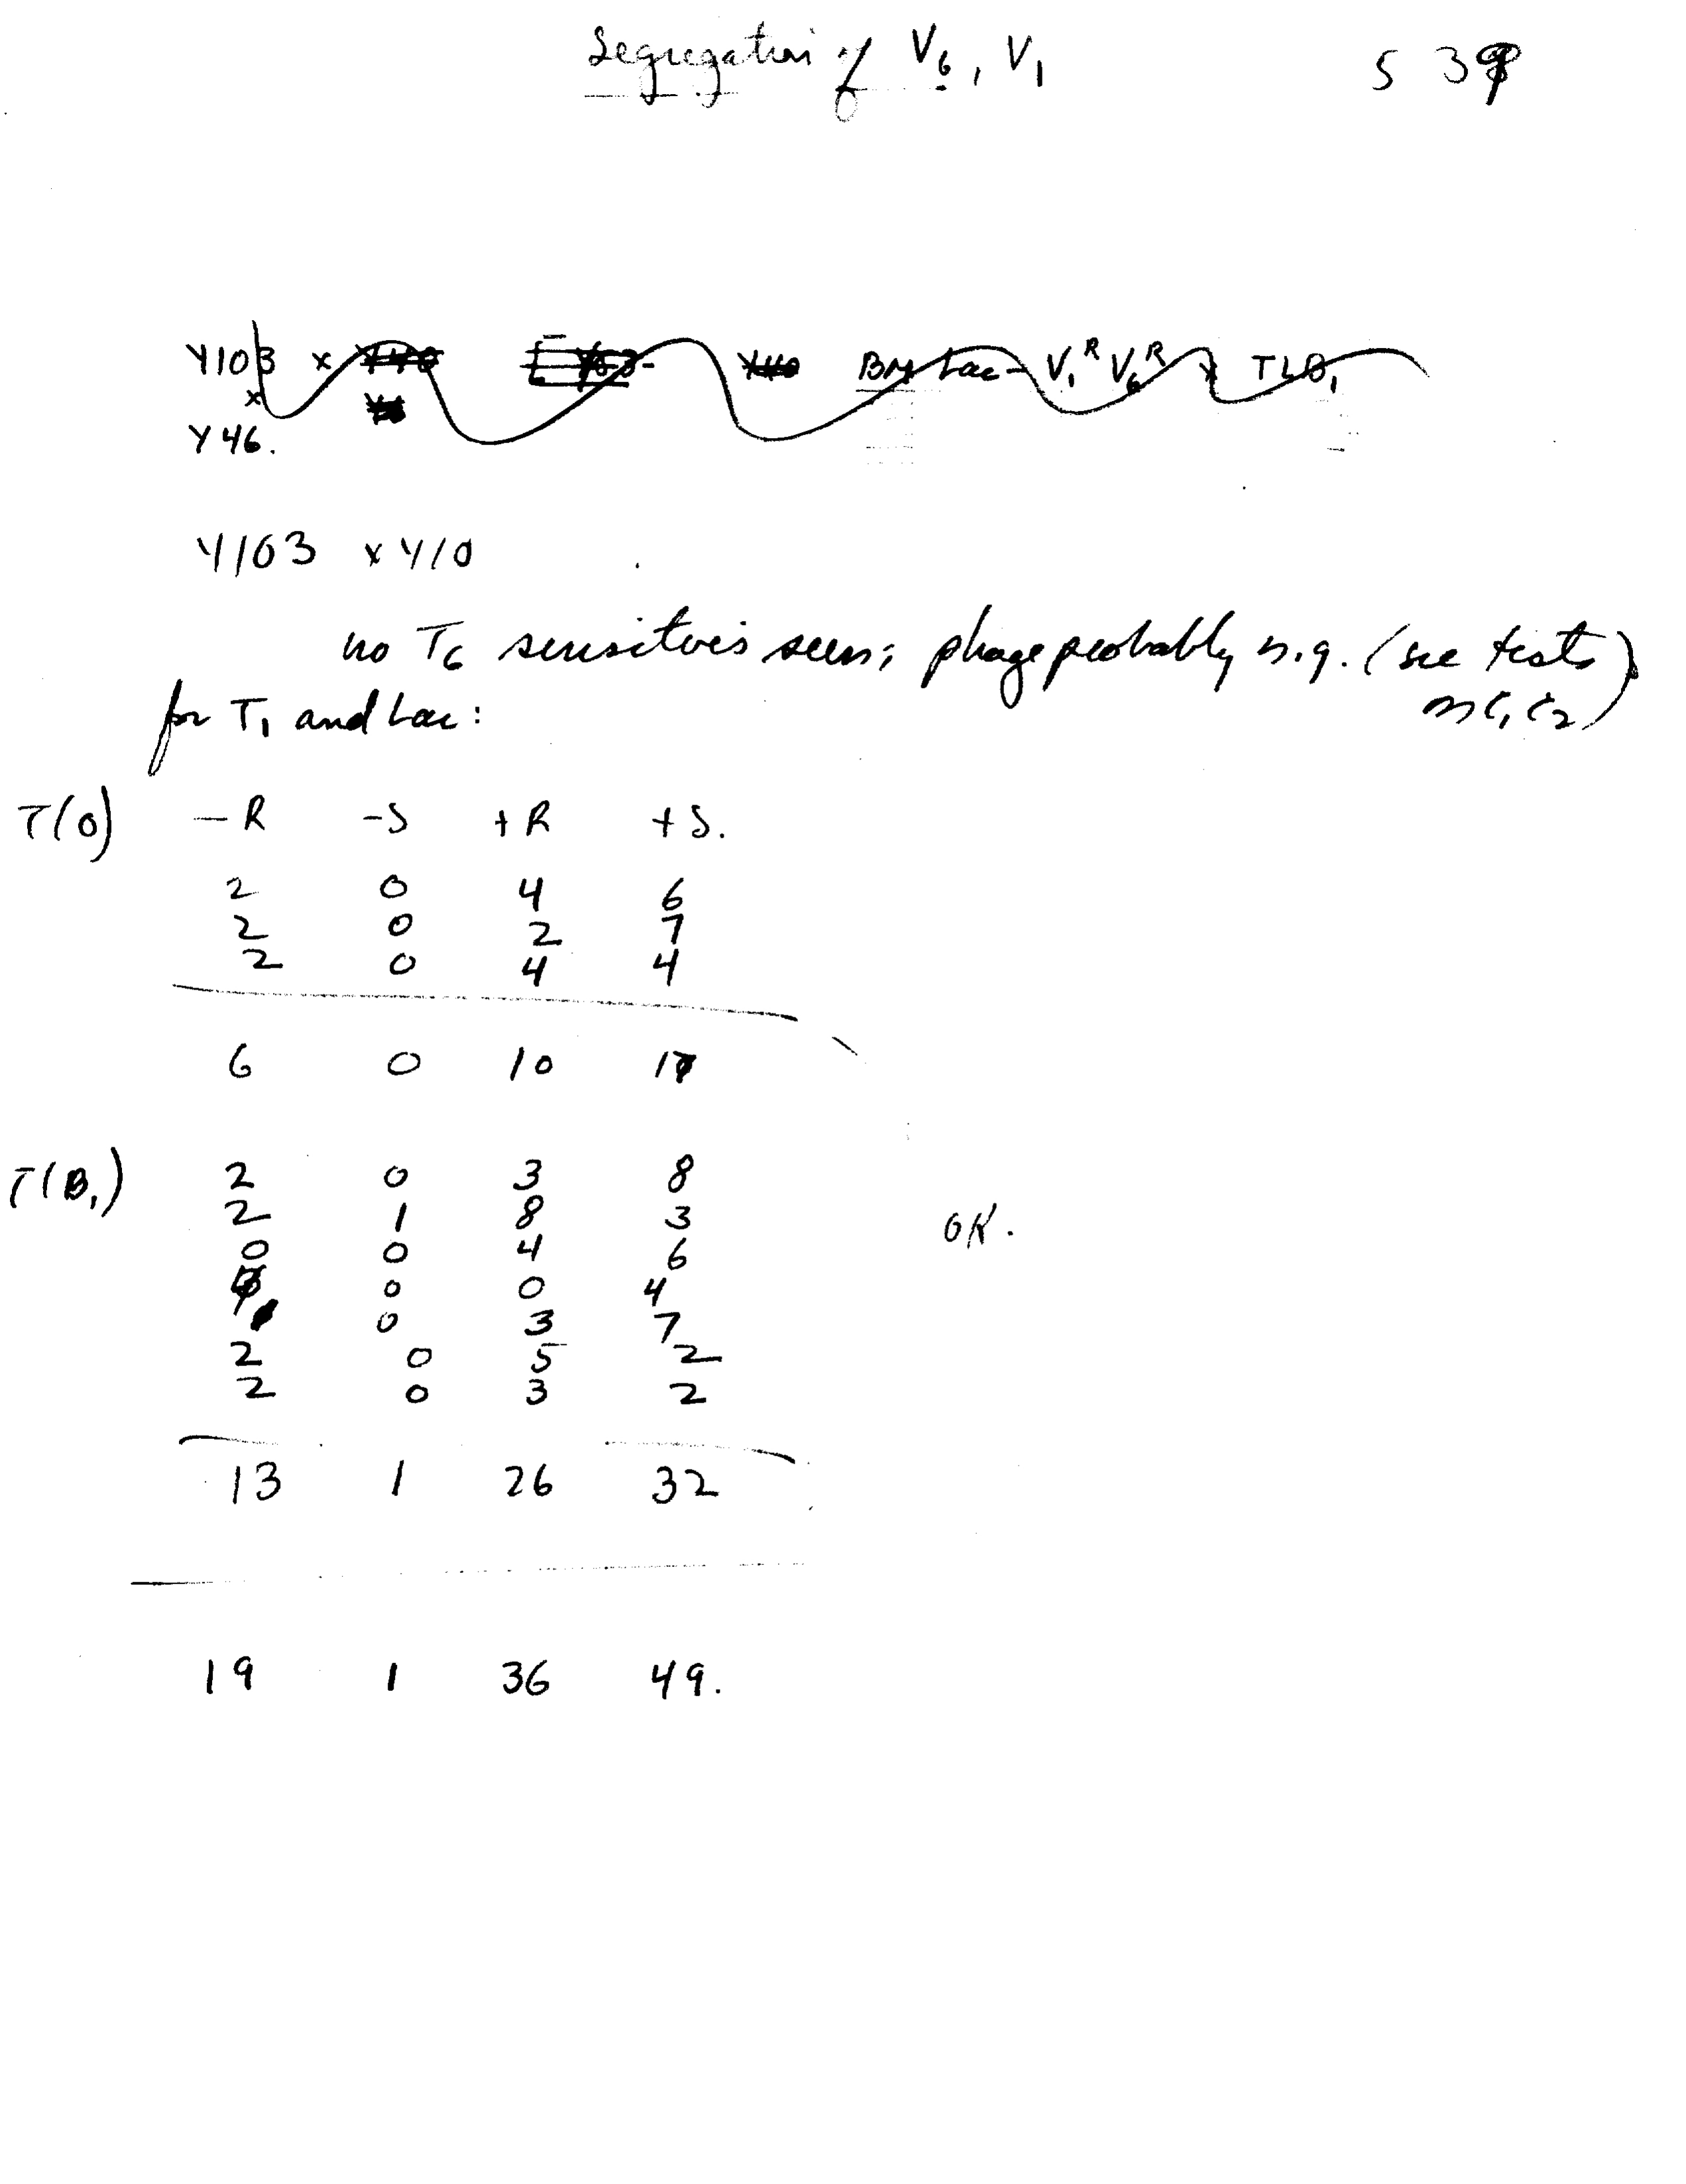 Segregation of V6, V1 539
Y103 x BM Lac- V1R V6R x TLB1
x
Y46.
Y103 x Y10
no T6 sensitives seen; phage probably n.g. (see tests
for T1 and Lac:
T(0) -R -S +R +S.
2 0 4 6
2 0 2 7
2 0 4 4
6 0 10 17
T(B1) 2 0 3 8
2 1 8 3
0 0 4 6
0 0 4
0 3 7
2 0 5 2
2 0 3 2
OK.
13 1 26 32
19 1 36 49.